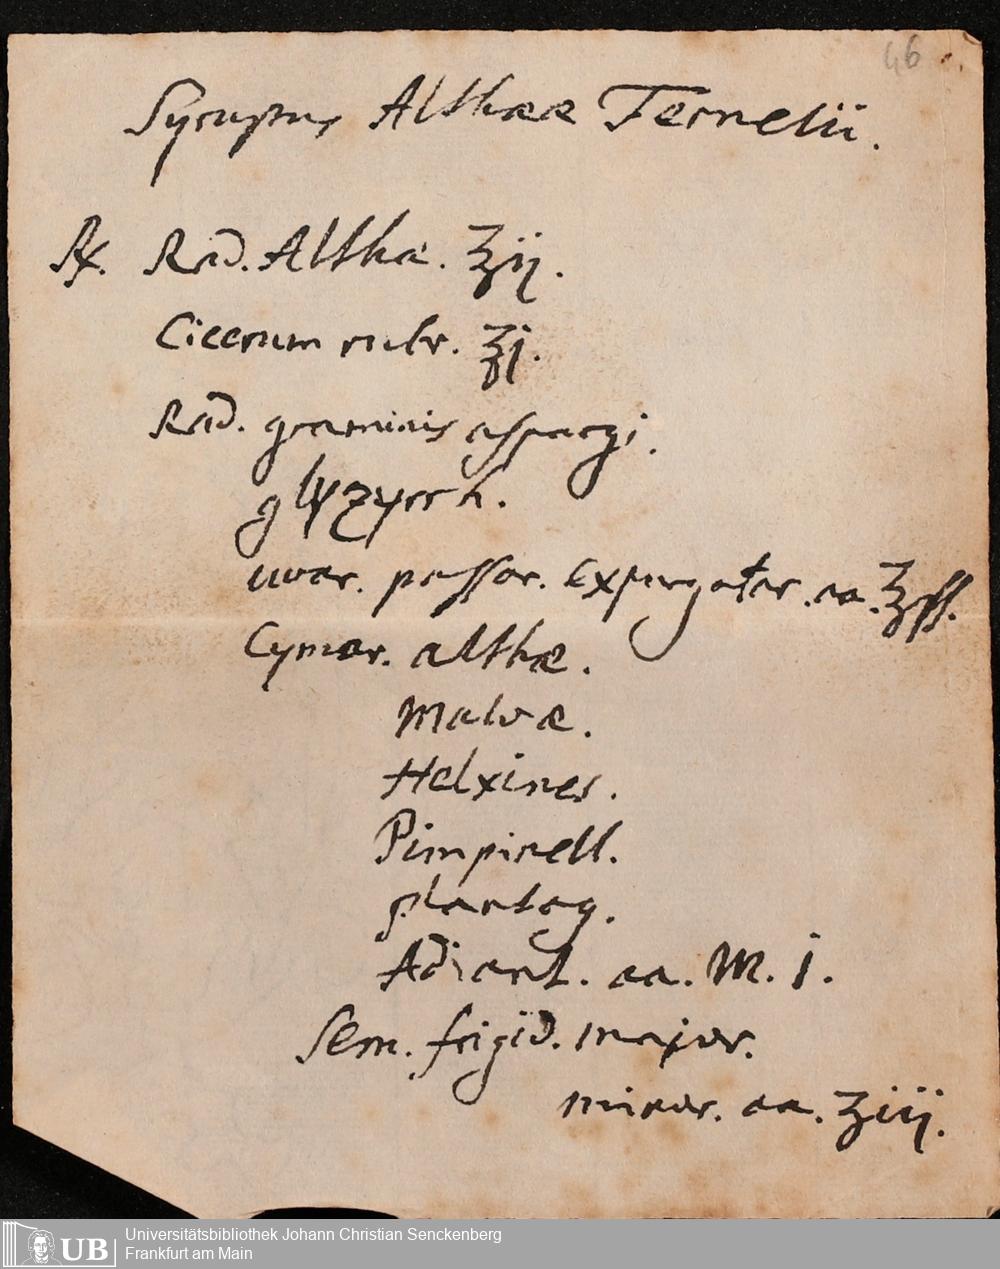 46
Syrupus Althææ Fernelii.
℞. Rad. Altha. ℥ij.
Cicerum rubr. ℥j.
Rad. graminis aspargi.
glyzyrrh.
uvar. passar. expurgatar. aa. ℥ß.
Cymar. althæ.
Malvæ.
Helxines.
Pimpinell.
plantag.
Adiant. aa. M. j.
Sem. frigid. major.
minor. aa. ʒiij.
UB Universitätsbibliothek Johann Christian Senckenberg
Frankfurt am Main